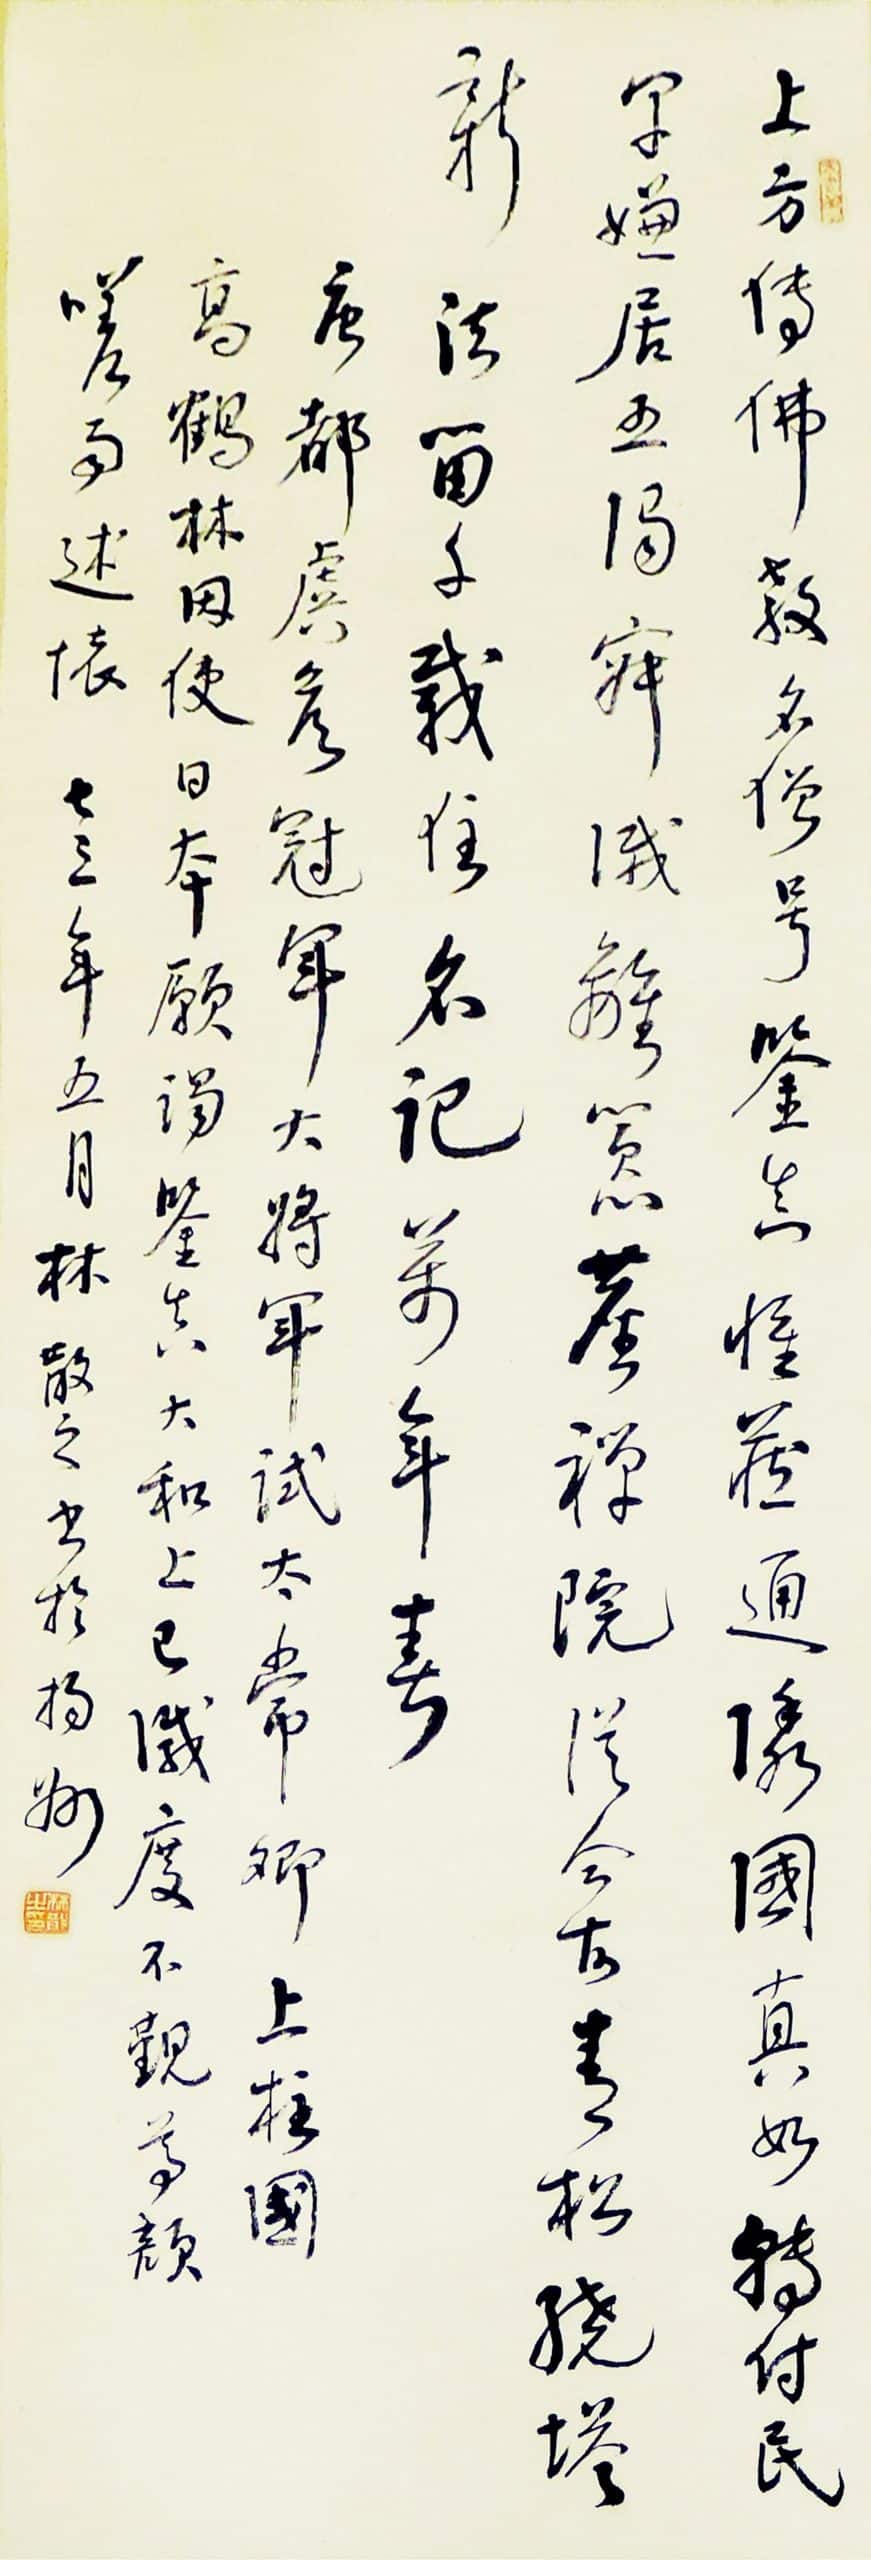 上方傳佛教名僧号鑒真懷藏通隣國真如轉付民
早嫌居五濁寂滅離囂塵禪院從今古青松繞塔
新法留千載住名記萬年春
唐都虞候冠軍大將軍試太常卿上柱國
高鶴林因使日本願謁鑒真大和上已滅度不覩尊顏
嗟而述懷 七三年五月林散之書於揚州